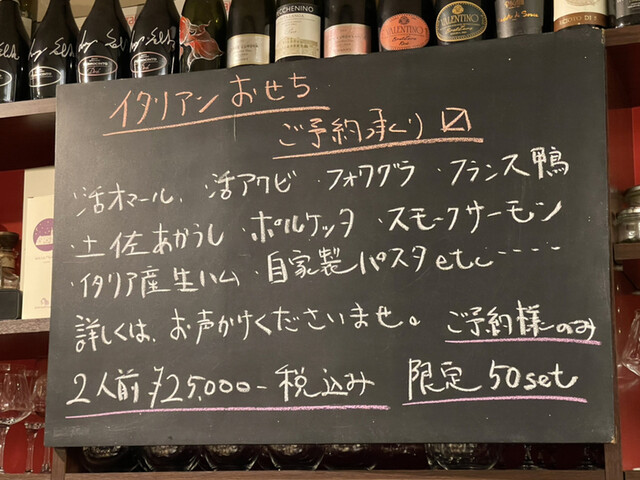 イタリアン おせち
ご予約承り〼
・活オマール ・活アワビ ・フォワグラ ・フランス鴨
・土佐あかうし ・ポルケッタ ・スモークサーモン
・イタリア産生ハム ・自家製パスタ etc‥‥
詳しくは、お声かけくださいませ。 ご予約様のみ
2人前 ¥25,000- 税込み 限定 50set
VALENTINO
VALENTINO